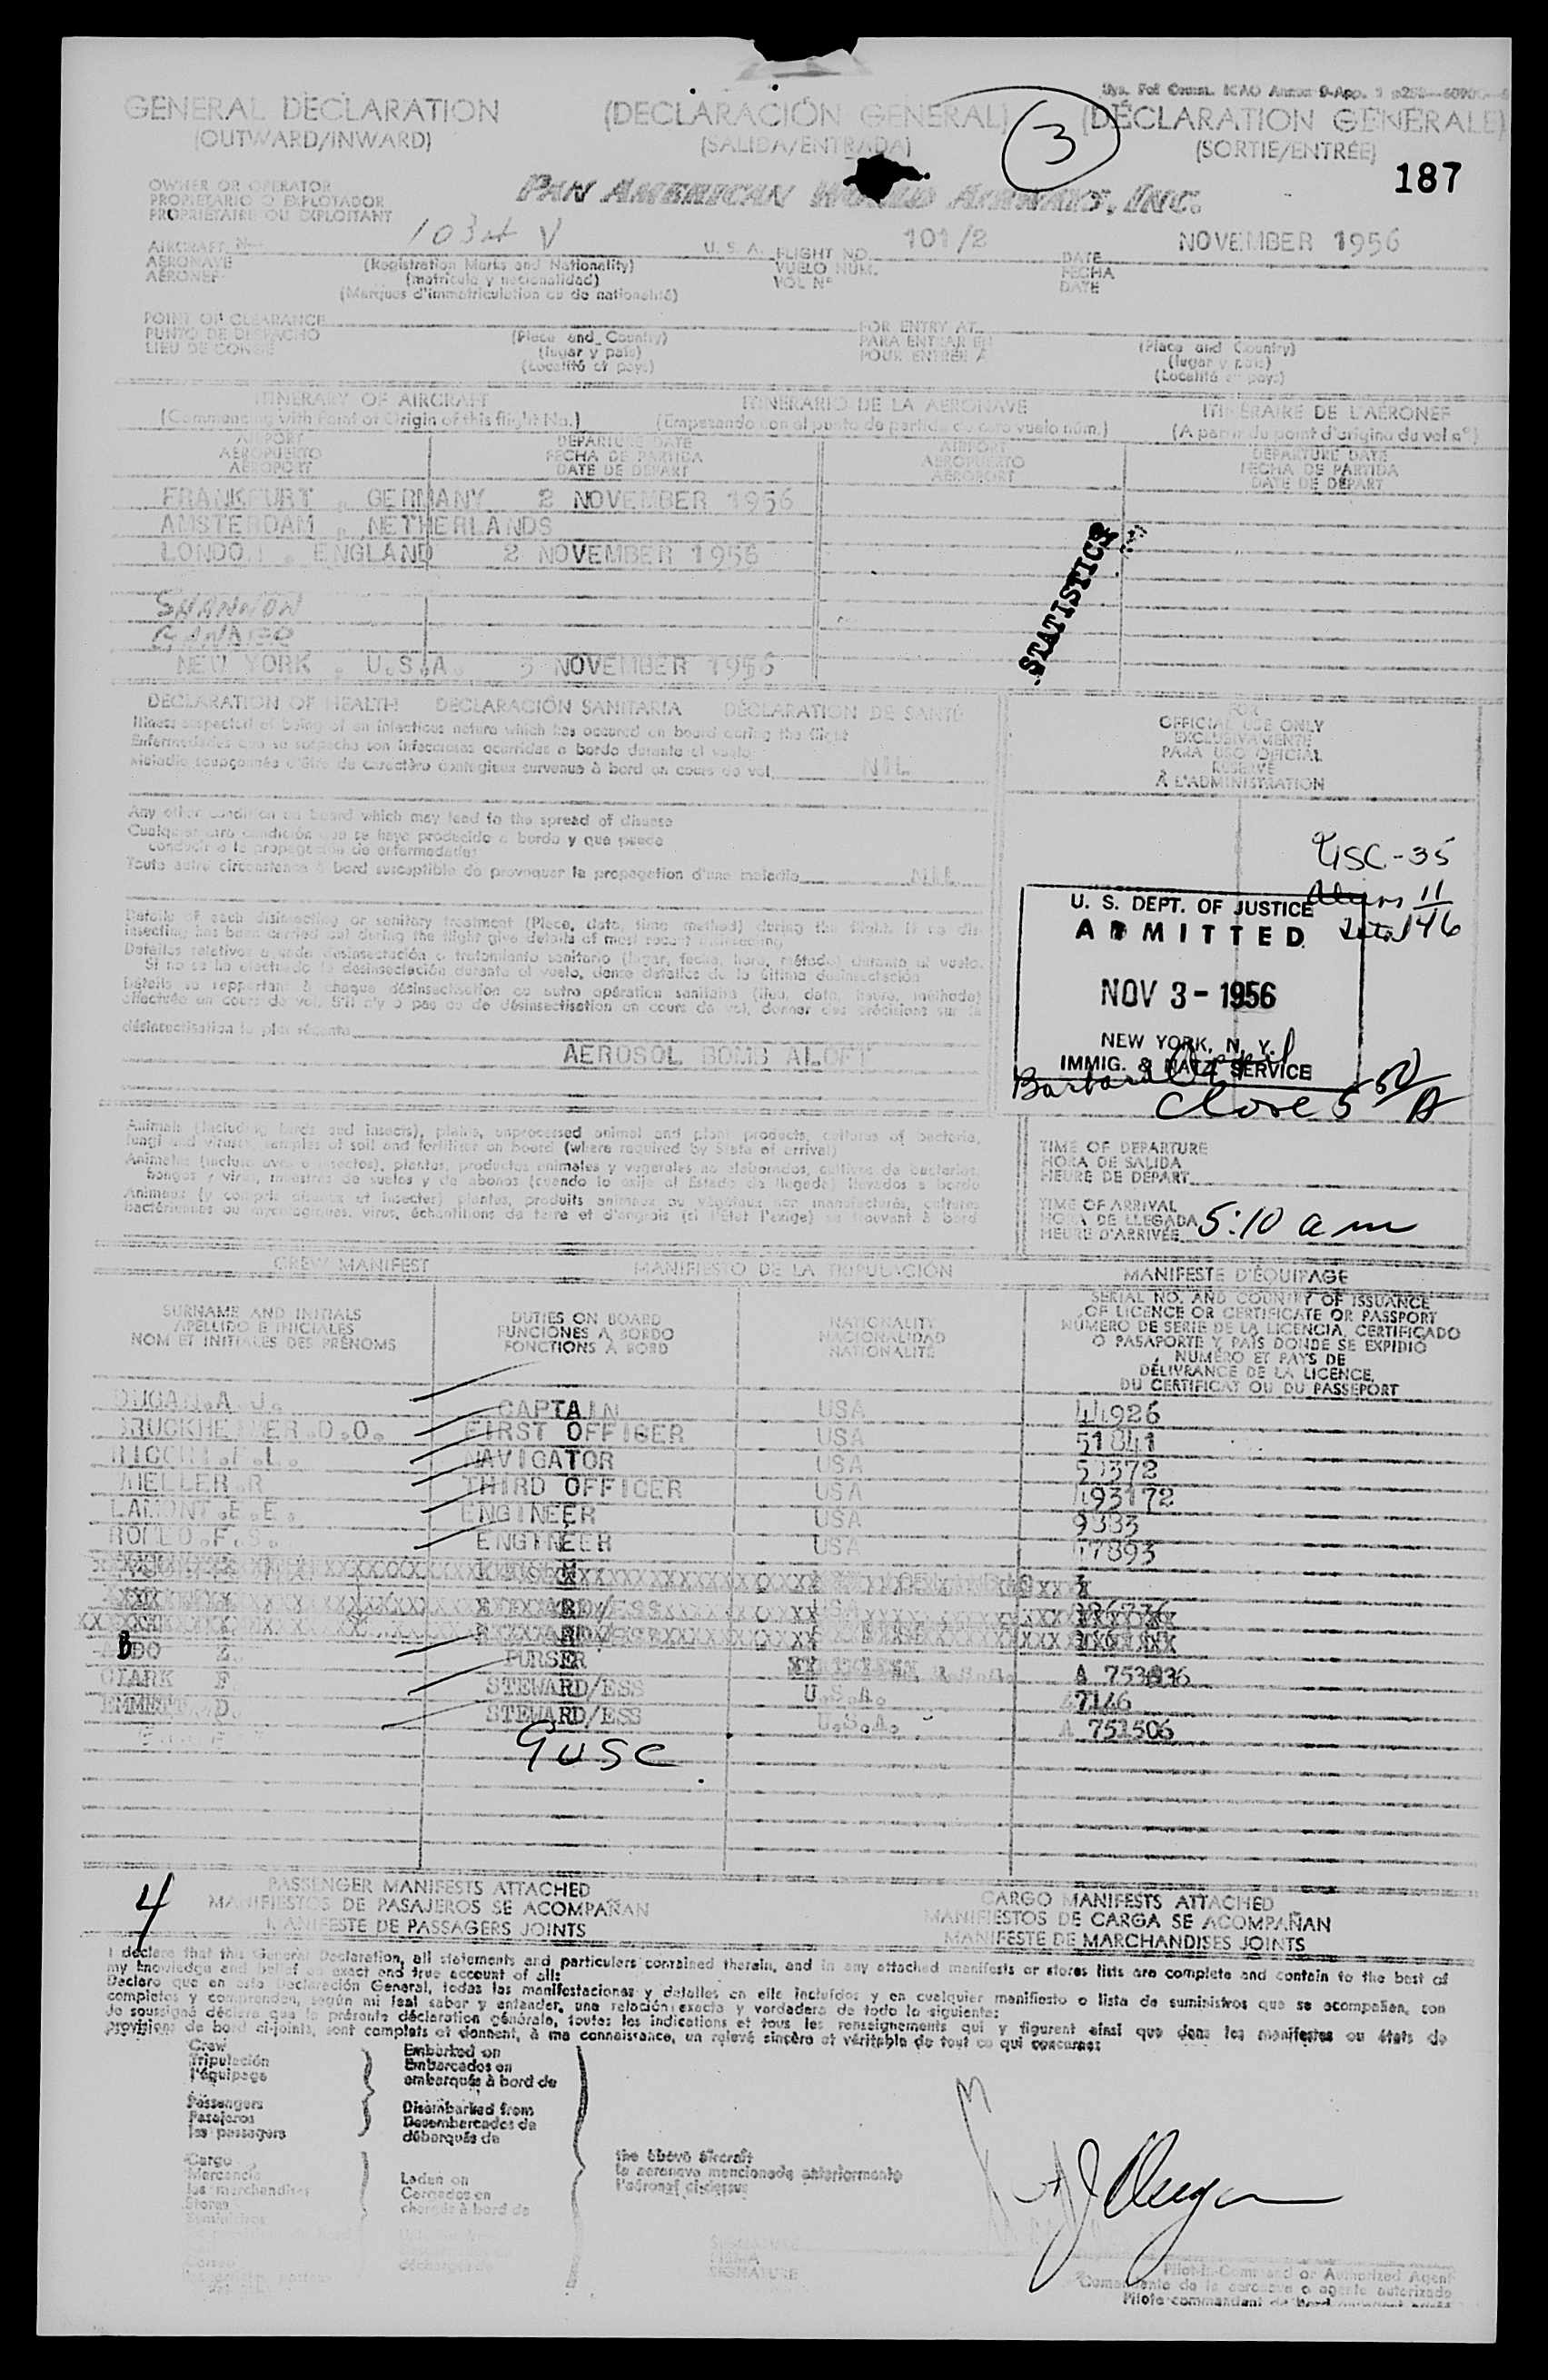 GENERAL DECLARATION (DECLARACIÓN GENERAL) (DÉCLARATION GÉNÉRALE)
(OUTWARD/INWARD) (SALIDA/ENTRADA) (SORTIE/ENTRÉE)
3
187
OWNER OR OPERATOR
PROPIETARIO O EXPLOTADOR
PROPRIÉTAIRE OU EXPLOITANT
PAN AMERICAN WORLD AIRWAYS, INC.
AIRCRAFT N- 1034 V U. S. A. FLIGHT NO. 101/2 DATE NOVEMBER 1956
AERONAVE (Registration Marks and Nationality) VUELO NUM. FECHA
AÉRONEF (matrícula y nacionalidad) VOL Nº DATE
(Marques d'immatriculation ou de nationalité)
POINT OF CLEARANCE FOR ENTRY AT
PUNTO DE DESPACHO (Place and Country) PARA ENTRAR EN (Place and Country)
LIEU DE CONGÉ (lugar y país) POUR ENTRÉE À (lugar y país)
(Localité et pays) (Localité et pays)
ITINERARY OF AIRCRAFT ITINERARIO DE LA AERONAVE ITINÉRAIRE DE L'AÉRONEF
(Commencing with Point of Origin of this flight No.) (Empezando con el punto de partida de este vuelo núm.) (A partir du point d'origine du vol nº)
AIRPORT DEPARTURE DATE AIRPORT DEPARTURE DATE
AEROPUERTO FECHA DE PARTIDA AEROPUERTO FECHA DE PARTIDA
AÉROPORT DATE DE DÉPART AÉROPORT DATE DE DÉPART
FRANKFURT, GERMANY 2 NOVEMBER 1956
AMSTERDAM, NETHERLANDS
LONDON, ENGLAND 2 NOVEMBER 1956
STATISTICS
SHANNON
GANDER
NEW YORK, U.S.A. 3 NOVEMBER 1956
DECLARATION OF HEALTH DECLARACIÓN SANITARIA DÉCLARATION DE SANTÉ
Illness suspected of being of an infectious nature which has occured on board during the flight
Enfermedades que se sospecha son infecciosas ocurridas a bordo durante el vuelo
Maladie soupçonnée d'être de caractère contagieux survenue à bord en cours de vol. NIL
FOR
OFFICIAL USE ONLY
EXCLUSIVAMENTE
PARA USO OFICIAL
RÉSERVÉ
À L'ADMINISTRATION
Any other condition on board which may lead to the spread of disease
Cualquier otra condición que se haya producido a bordo y que pueda
conducir a la propagación de enfermedades
Toute autre circonstance à bord susceptible de provoquer la propagation d'une maladie NIL
USC-35
Aliens 11
Total 46
U. S. DEPT. OF JUSTICE
ADMITTED
NOV 3 - 1956
NEW YORK, N. Y.
IMMIG. & NATZ SERVICE
Barbara
Close 5 50/A
Details of each disinsecting or sanitary treatment (Place, date, time method) during the flight. If no dis-
insecting has been carried out during the flight give details of most recent disinsecting
Detalles relativos a cada desinsectación o tratamiento sanitario (lugar, fecha, hora, método) durante el vuelo.
Si no se ha efectuado la desinsectación durante el vuelo, dense detalles de la última desinsectación
Détails se rapportant à chaque désinsectisation ou autre opération sanitaire (lieu, date, heure, méthode)
effectuée en cours de vol. S'il n'y a pas eu de désinsectisation en cours de vol, donner des précisions sur la
désinsectisation la plus récente
AEROSOL BOMB ALOFT
Animals (including birds and insects), plants, unprocessed animal and plant products, cultures of bacteria,
fungi and viruses, samples of soil and fertilizer on board (where required by State of arrival)
Animales (incluso aves e insectos), plantas, productos animales y vegetales no elaborados, cultivos de bacterias,
hongos y virus, muestras de suelos y de abonos (cuando lo exija el Estado de llegada) llevados a bordo
Animaux (y compris oiseaux et insectes) plantes, produits animaux ou végétaux non manufacturés, cultures
bactériennes ou mycologiques, virus, échantillons de terre et d'engrais (si l'État l'exige) se trouvant à bord
TIME OF DEPARTURE
HORA DE SALIDA
HEURE DE DEPART
TIME OF ARRIVAL
HORA DE LLEGADA 5:10 am
HEURE D'ARRIVÉE
CREW MANIFEST MANIFIESTO DE LA TRIPULACIÓN MANIFESTE D'ÉQUIPAGE
SURNAME AND INITIALS DUTIES ON BOARD NATIONALITY SERIAL NO. AND COUNTRY OF ISSUANCE
APELLIDO E INICIALES FUNCIONES A BORDO NACIONALIDAD OF LICENCE OR CERTIFICATE OR PASSPORT
NOM ET INITIALES DES PRÉNOMS FONCTIONS À BORD NATIONALITÉ NÚMERO DE SERIE DE LA LICENCIA, CERTIFICADO
O PASAPORTE Y PAÍS DONDE SE EXPIDIÓ
NUMÉRO ET PAYS DE
DÉLIVRANCE DE LA LICENCE,
DU CERTIFICAT OU DU PASSEPORT
DUGAN.A.J. CAPTAIN USA 44926
FIRST OFFICER USA 51841
NAVIGATOR USA
MELLER.R THIRD OFFICER USA 493172
LAMONT.E.E. ENGINEER USA
ROLLO.F.S. ENGINEER USA
PURSER
CLARK F STEWARD/ESS U.S.A. 47146
STEWARD/ESS U.S.A. A 751506
9 USC
4
PASSENGER MANIFESTS ATTACHED CARGO MANIFESTS ATTACHED
MANIFIESTOS DE PASAJEROS SE ACOMPAÑAN MANIFIESTOS DE CARGA SE ACOMPAÑAN
MANIFESTE DE PASSAGERS JOINTS MANIFESTE DE MARCHANDISES JOINTS
I declare that this General Declaration, all statements and particulars contained therein, and in any attached manifests or stores lists are complete and contain to the best of
my knowledge and belief an exact and true account of all:
Declaro que en esta Declaración General, todas las manifestaciones y detalles en ella incluídos y en cualquier manifiesto o lista de suministros que se acompañen, son
completos y comprenden, según mi leal saber y entender, una relación exacta y verdadera de todo lo siguiente:
Je soussigné déclare que la présente déclaration générale, toutes les indications et tous les renseignements qui y figurent ainsi que dans les manifestes ou états de
provisions de bord ci-joints, sont complets et donnent, à ma connaissance, un relevé sincère et véritable de tout ce qui concerne:
Crew Embarked on
Tripulación Embarcados en
l'équipage embarqués à bord de
Passengers Disembarked from
Pasajeros Desembarcados de
les passagers débarqués de
Cargo the above aircraft
Mercancía Laden on la aeronave mencionada anteriormente
les marchandises Cargados en l'aéronef ci-dessus
Stores chargés à bord de
Suministros
SIGNATURE
FIRMA
SIGNATURE
AJ Dugan
Pilot-in-Command or Authorized Agent
Comandante de la aeronave o agente autorizado
Pilote commandant de bord